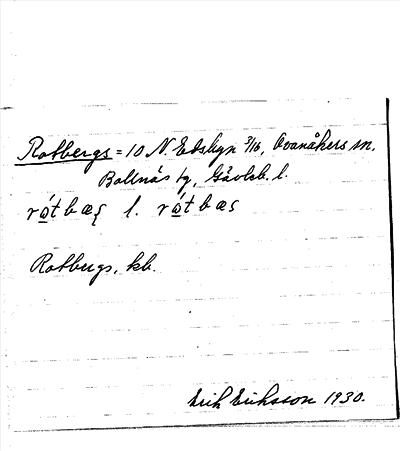 Rotbergs = 10 N. Edsbyn 3/16, Ovanåkers sn,
Bollnäs tg, Gävleb. l.
rόtbæς l. rόtbæς
Rotbergs, kb.
Erik Eriksson 1930.